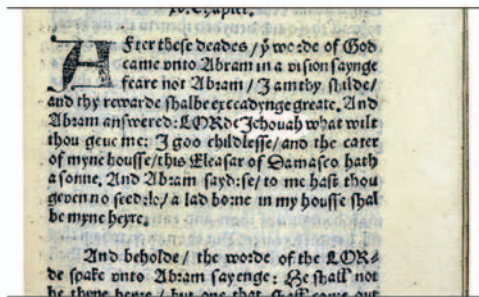 xv. Chapter.
AFter these deades/ yͤ worde of God
came vnto Abram in a vision saynge
feare not Abram/ I am thy shilde/
and thy rewarde shalbe exceadynge greate. And
Abram answered: LORde Jehouah what wilt
thou geue me: I goo childlesse/ and the cater
of myne housse/ this Eleasar of Damasco hath
a sonne. And Abram sayd: se/ to me hast thou
geven no seed: lo/ a lad borne in my housse shal
be myne heyre.
And beholde/ the worde of the LOR-
de spake vnto Abram sayenge: He shall not
be thyne heyre/ but one that shall come out